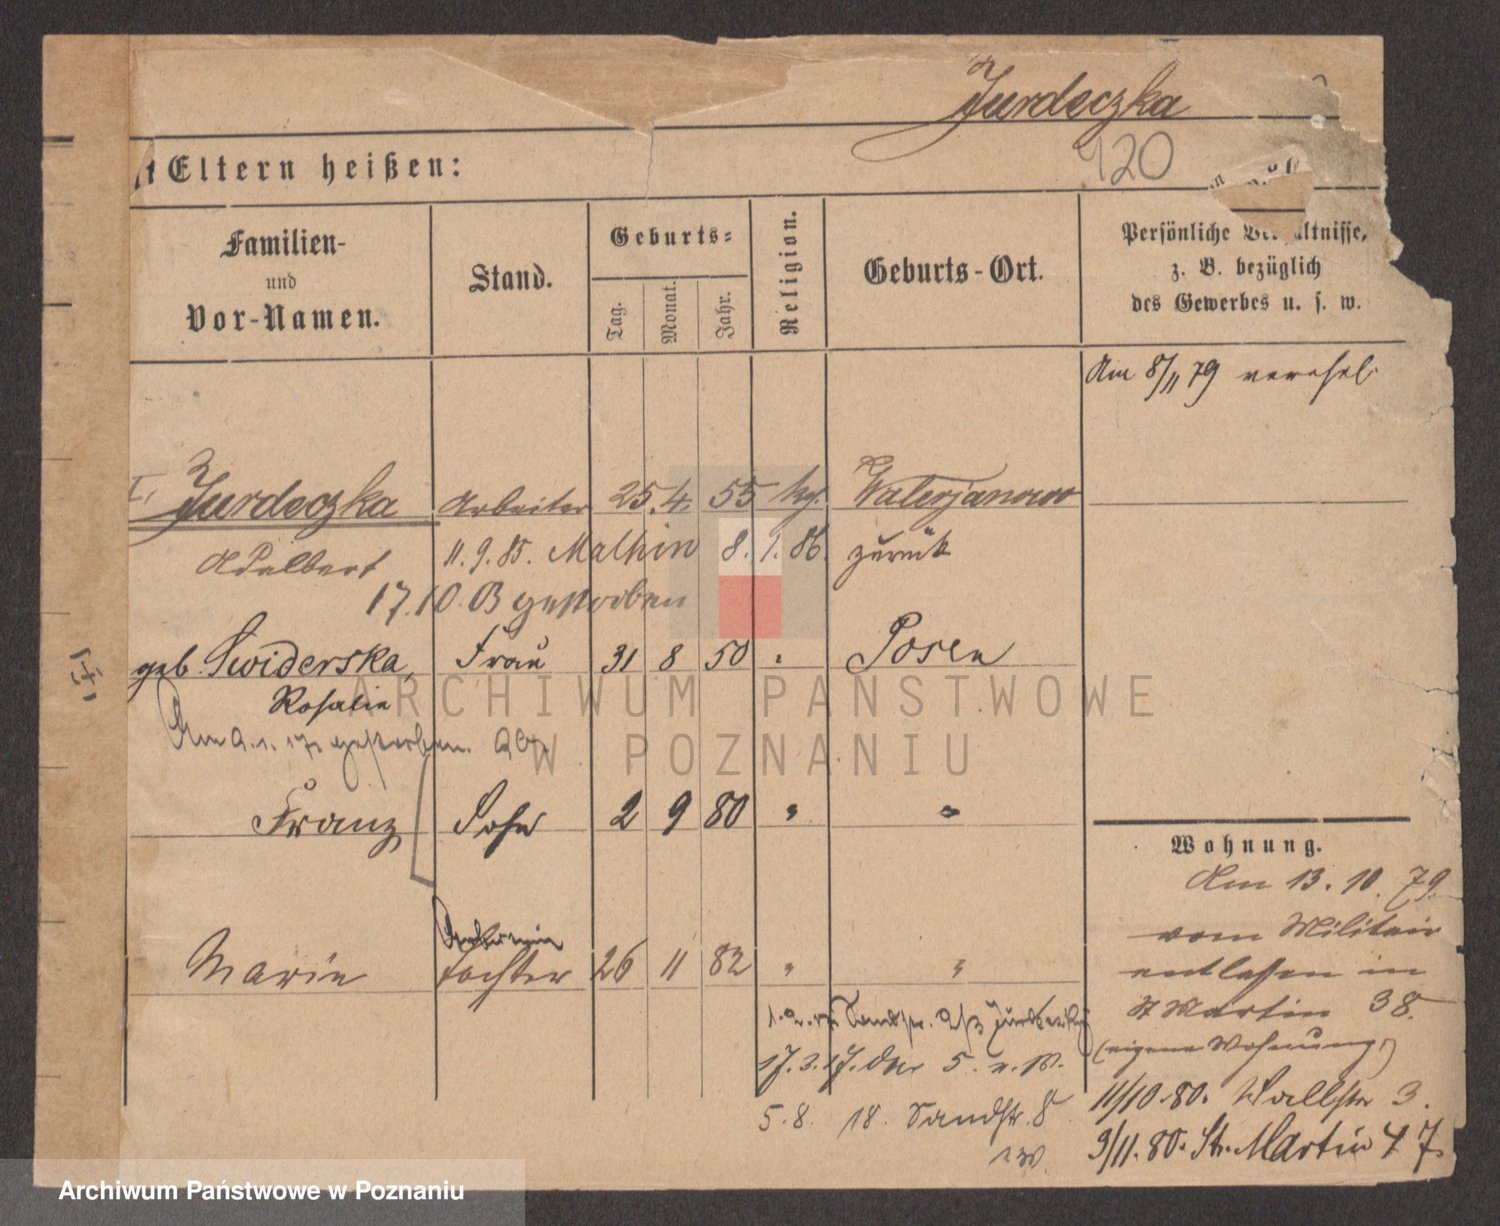 Jurdeczka
120
Eltern heißen:
Familien-
und
Vor-Namen.
Stand.
Geburts-
Tag.
Monat.
Jahr.
Religion.
Geburts-Ort.
Persönliche Verhältnisse,
z. B. bezüglich
des Gewerbes u. s. w.
Am 8/11 79 verehel.
I, Jurdeczka Arbeiter 25. 4. 55 kg. Walerjanowo
Adalbert 11. 9. 85. Malchin 8. 1. 86. zurück
17.10. gestorben
geb. Swiderska, Frau 31 8 50 " Posen
Rosalie
Am 9. 1. 17 gestorben.
Franz Sohn 2 9 80 " "
Marie Tochter 26 11 82 " "
Wohnung.
Am 13. 10. 79.
vom Militair
entlassen in
St Martin 38.
(eigene Wohnung)
11/10. 80. Wallstr 3.
9/11. 80. St. Martin 47.
17. 3. 17.
5. 8. 18. Sandstr. 8
ARCHIWUM PAŃSTWOWE
W POZNANIU
Archiwum Państwowe w Poznaniu